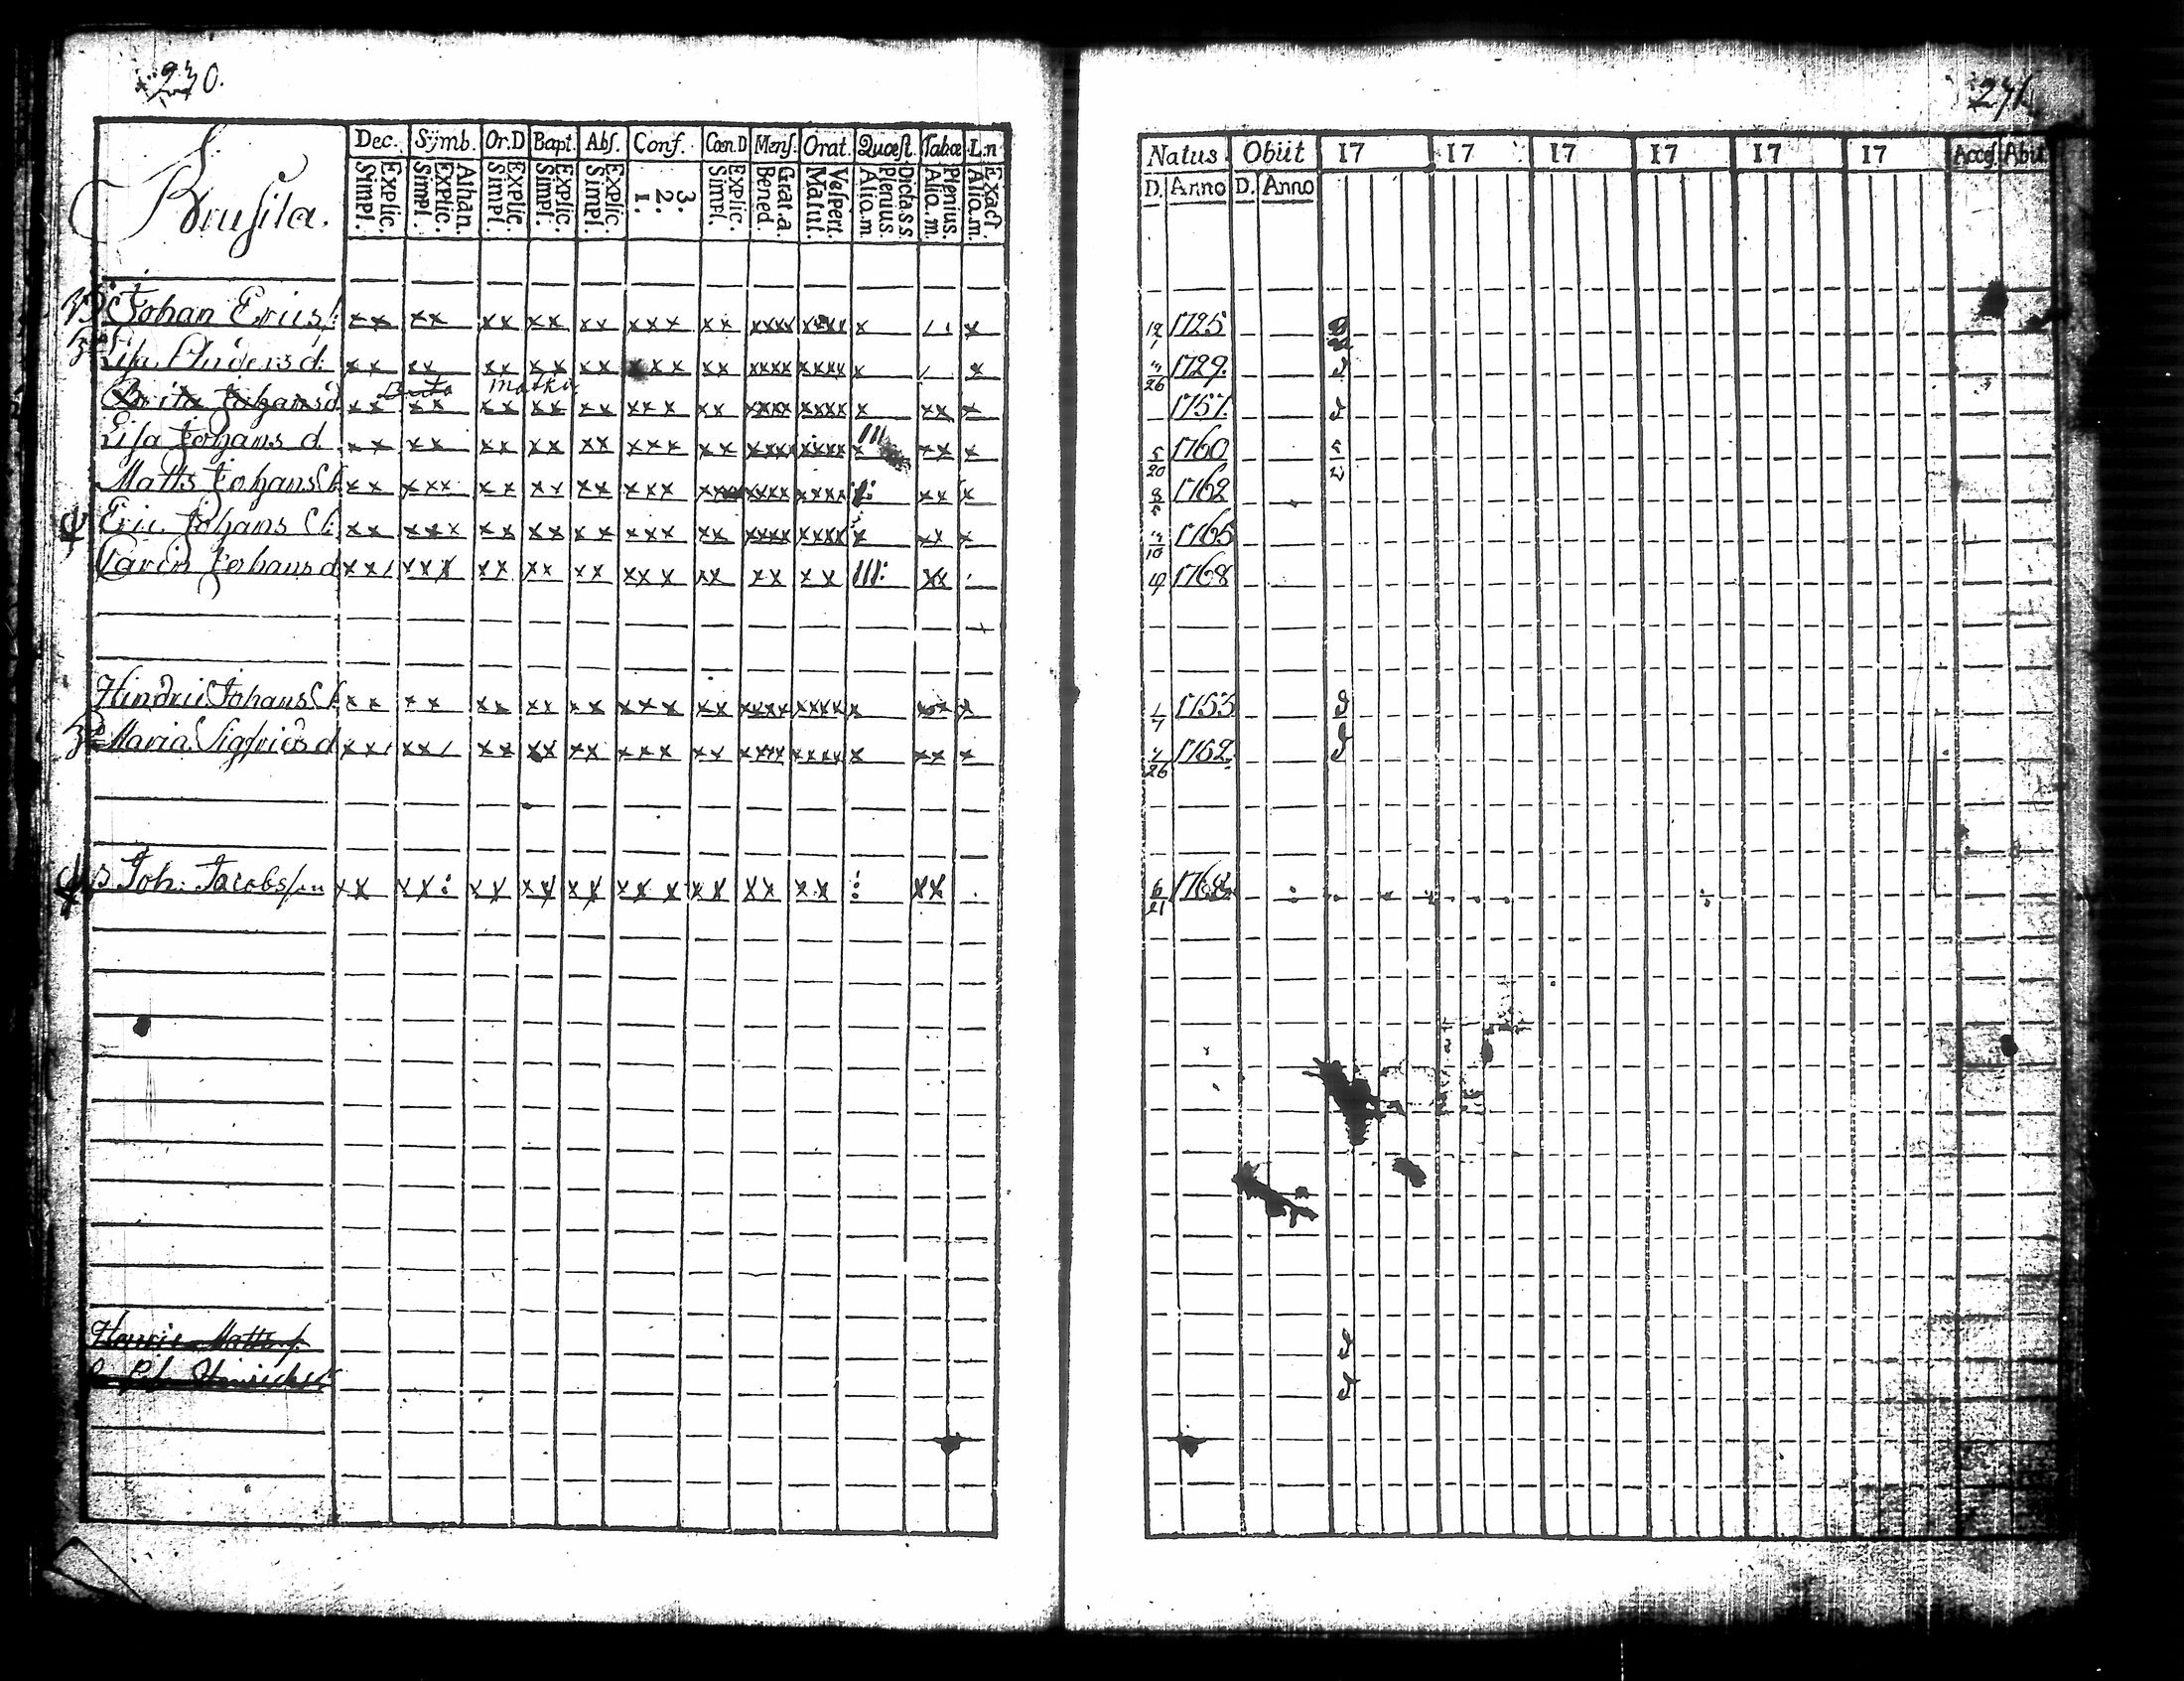 230.
241
Brusila.
Dec. Symb. Or.D Bapt. Abs. Conf. Cœn.D Mens. Orat. Quæst. Tabœ L.n
Explic. Simpl. Athan. Explic. Simpl. Explic. Simpl. Explic. Simpl. Explic. Simpl. 3. 2. 1. Explic. Simpl. Grat.a. Bened. Vespert. Matut. Dicta.s.s. Plenius. Aliq.m Plenius. Aliq.m. Exact. Aliq.m.
Natus Obiit 17 17 17 17 17 17 Acces. Abiit
D. Anno D. Anno
Johan Erics s: xx xx xx xx xx xxx xx xxxx xxxx x x 1725
Lisa Anders d: xx xx xx xx xx xxx xx xxxx xxxx x 26 1729.
Brita Johans d xx xx xx xx xx xxx xx xxxx xxxx x xx x 1757.
Lisa Johans d xx xx xx xx xx xxx xx xxxx xxxx x xx x 5/20 1760
Matts Johans S: xx xxx xx xx xx xxx xxxx xxxx xx x 8 1762
Eric Johans S: xx xxx xx xx xx xxx xx xxxx xxxx x xx x 10 1765
Carin Johans d xx xxx xx xx xx xxx xx xx xx xx 1768
Hindric Johans S: xx xx xx xx xx xxx xx xxxx xxxx x x 1/7 1755
Maria Sigfrids d xx xx xx xx xx xxx xx xxxx xxxx x xx x 26 1762.
Joh: Jacobsson xx xx xx xx xx xxx xx xx xx xx 6/21 1768
Henric Matts s.
Hinrichs